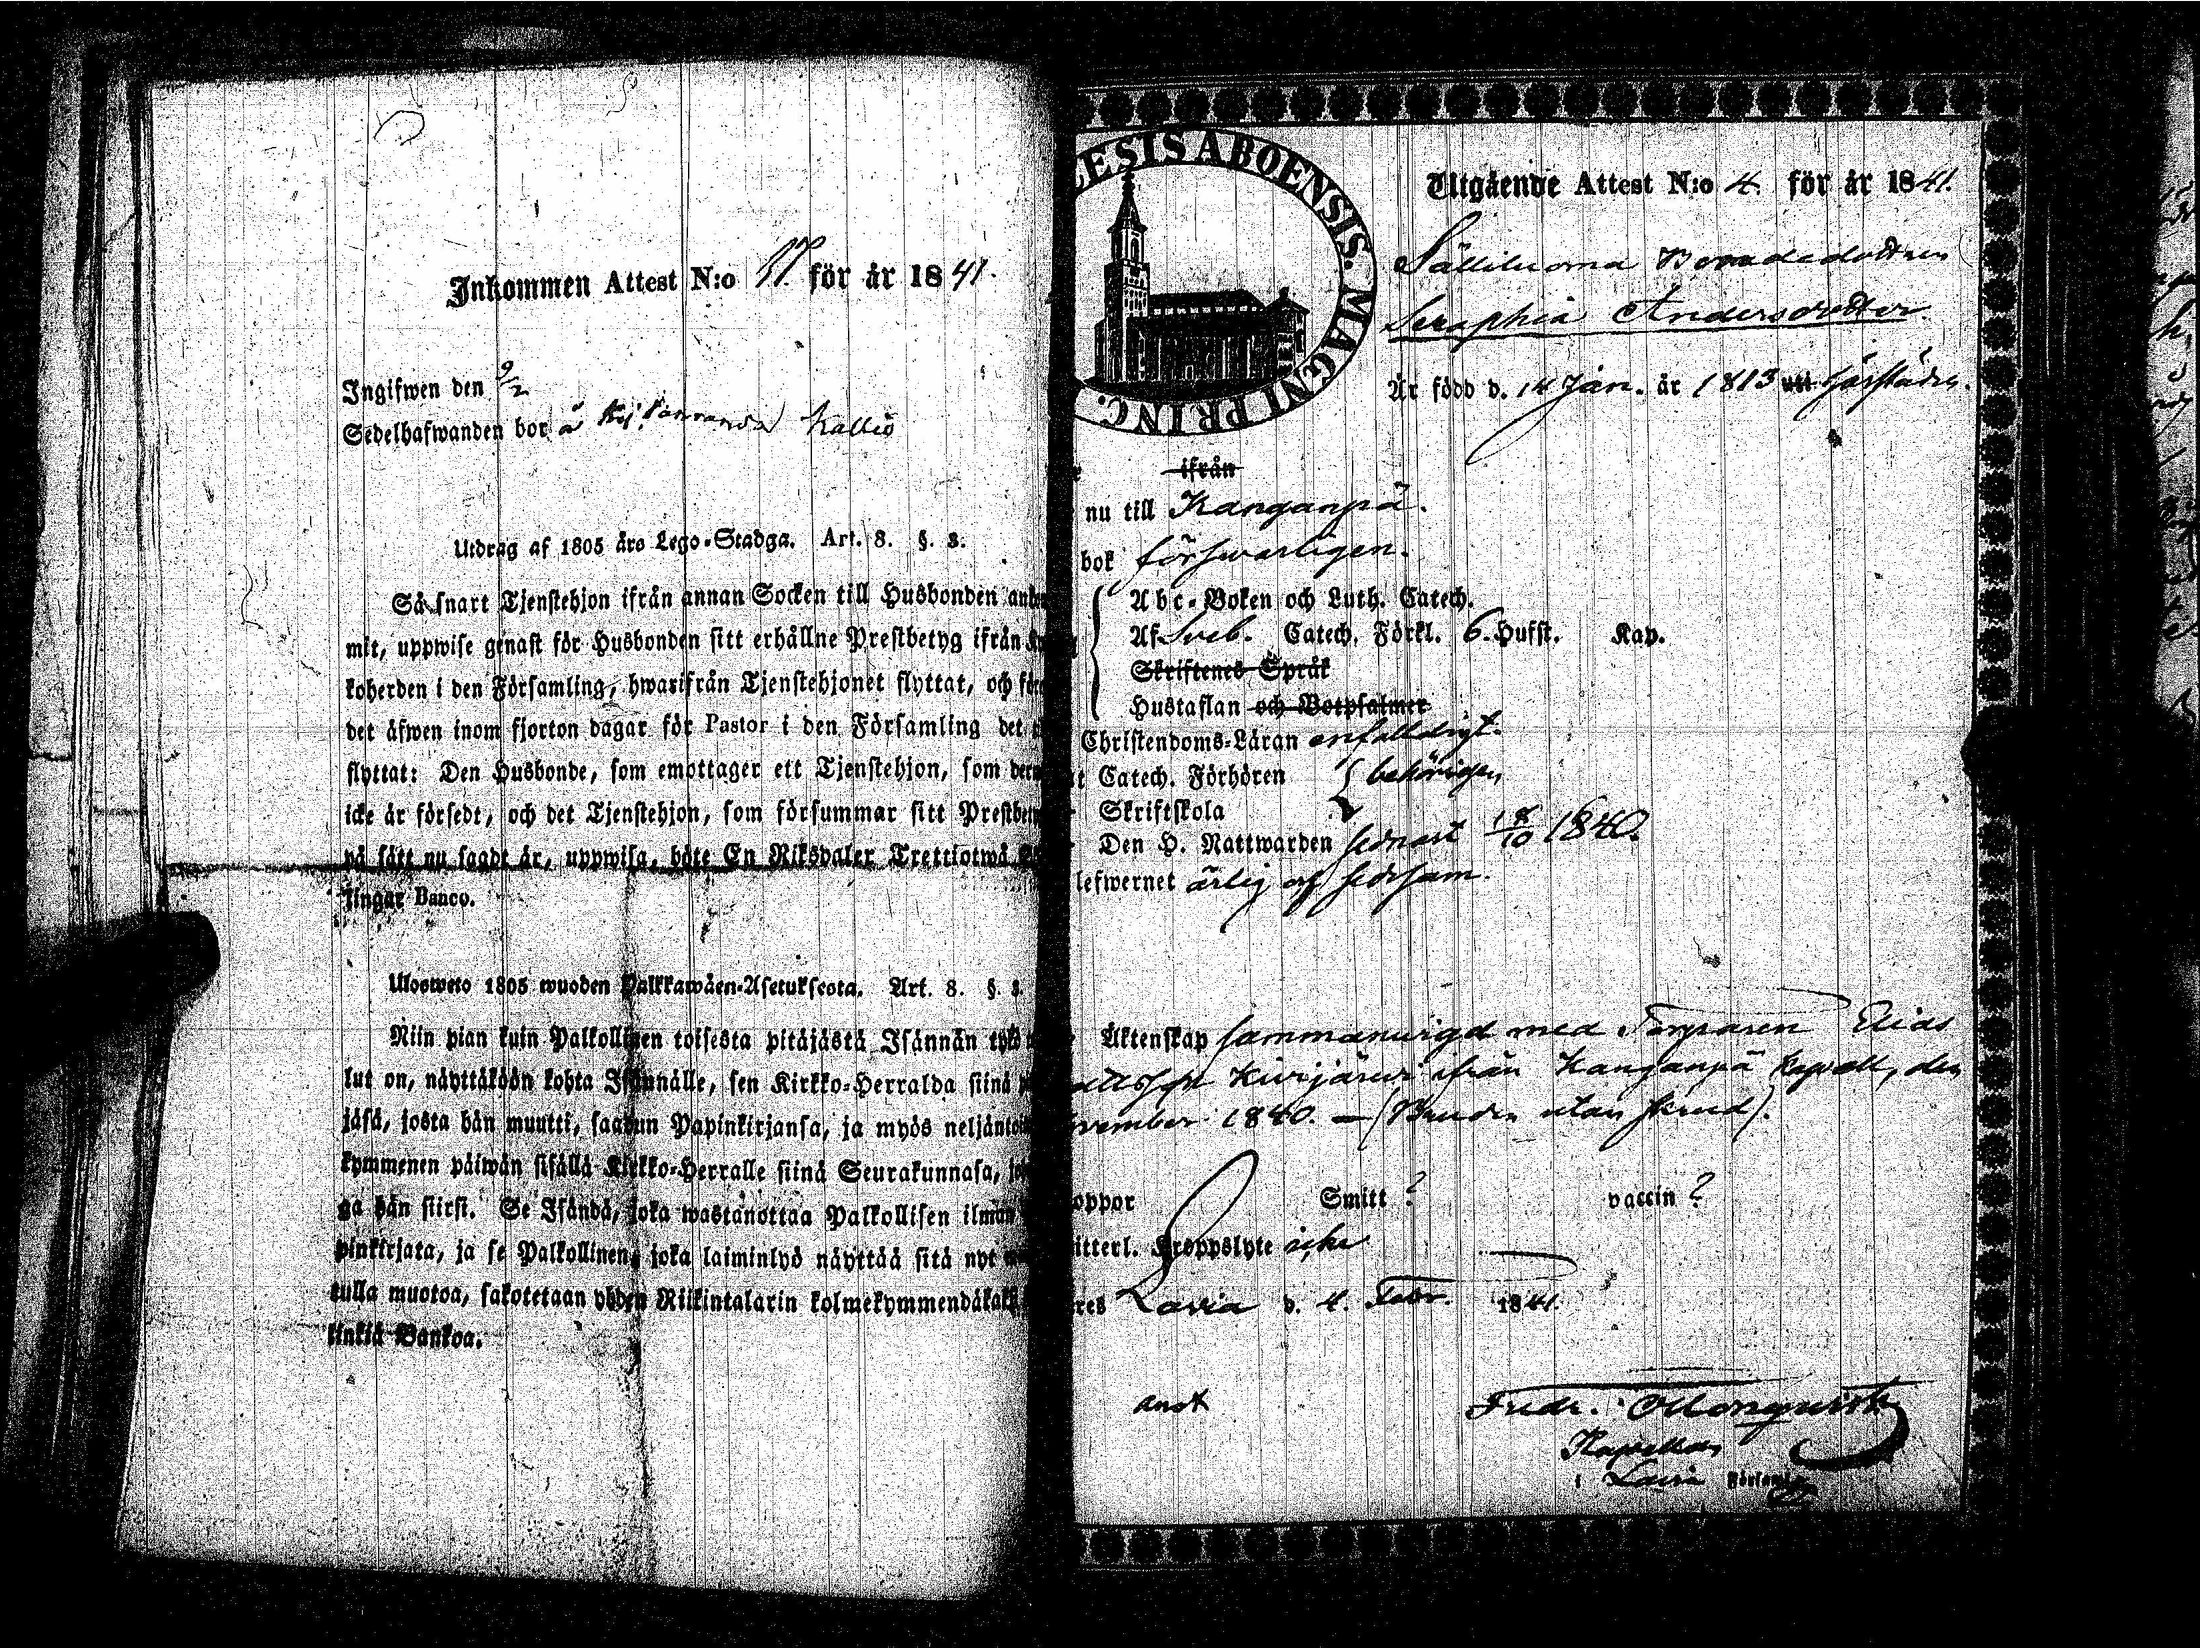 Inkommen Attest N:o 17. för år 1841.
Ingifwen den 9/2
Sedelhafwanden bor å Kallio
Utdrag af 1805 års Lego-Stadga. Art. 8. §. 3.
Så snart Tjenstehjon ifrån annan Socken till Husbonden
mit, uppwise genast för Husbonden sitt erhållne Prestbetyg ifrån
koherden i den Församling, hwarifrån Tjenstehjonet flyttat, och
det äfwen inom fjorton dagar för Pastor i den Församling det
flyttat: Den Husbonde, som emottager ett Tjenstehjon, som
icke är försedt, och det Tjenstehjon, som försummar sitt
på sätt nu sagdt är, uppwisa, böte En Riksdaler Trettiotwå
lingar Banco.
Ulosweto 1805 wuoden Palkkawäen-Asetuksesta. Art. 8. §. 3.
Niin pian kuin Palkollinen toisesta pitäjästä Isännän tykö
lut on, näyttäköön kohta Isännälle, sen Kirkko-Herralda siinä
jäsä, josta hän muutti, saadun Papinkirjansa, ja myös
kymmenen päiwän sisällä Kirkko-Herralle siinä Seurakunnasa,
ga hän siirsi. Se Isändä, joka wastanottaa Palkollisen ilman
pinkirjata, ja se Palkollinen, joka laiminlyö näyttää sitä nyt
tulla muotoa, sakotetaan yhden Riikintalarin kolmekymmendäkaksi
linkiä Bankoa.
LESIS ABOENSIS. MAGNI PRINC.
Utgående Attest N:o 4. för år 1841.
Sälliluoma Bondedottren
Seraphia Andersdotter
Är född d. 14 Jan. år 1813 uti härstädes.
ifrån
nu till Kanganpä.
bok försvarligen.
Abc-Boken och Luth. Catech.
Af Sveb. Catech. Förkl. 6. Hufst. Kap.
Skriftenes Språk
Hustaflan och Botpsalmer
Christendoms-Läran enfalldigt.
Catech. Förhören behörigen
Skriftskola
Den H. Nattwarden sednast 18/10 1840.
lefwernet ärlig och sedesam.
Äktenskap sammanvigd med Torparen Elias
Kivijärvi ifrån Kanganpä Kapell, den
vember 1840. — (Bruden utan skrud).
oppor Smitt ? vaccin ?
itterl. Kroppslyte icke
res Lavia d. 4. Febr. 1841.
Fredr.
Kapellan
i Lavia Församl.